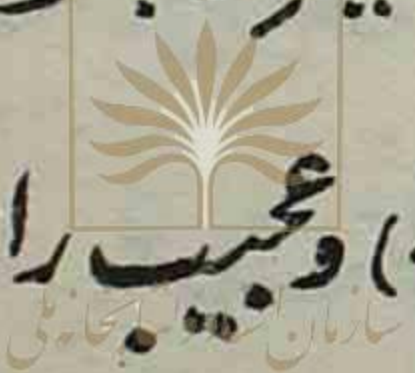 ) وعجیب را
سازمان اسناد و کتابخانه ملی